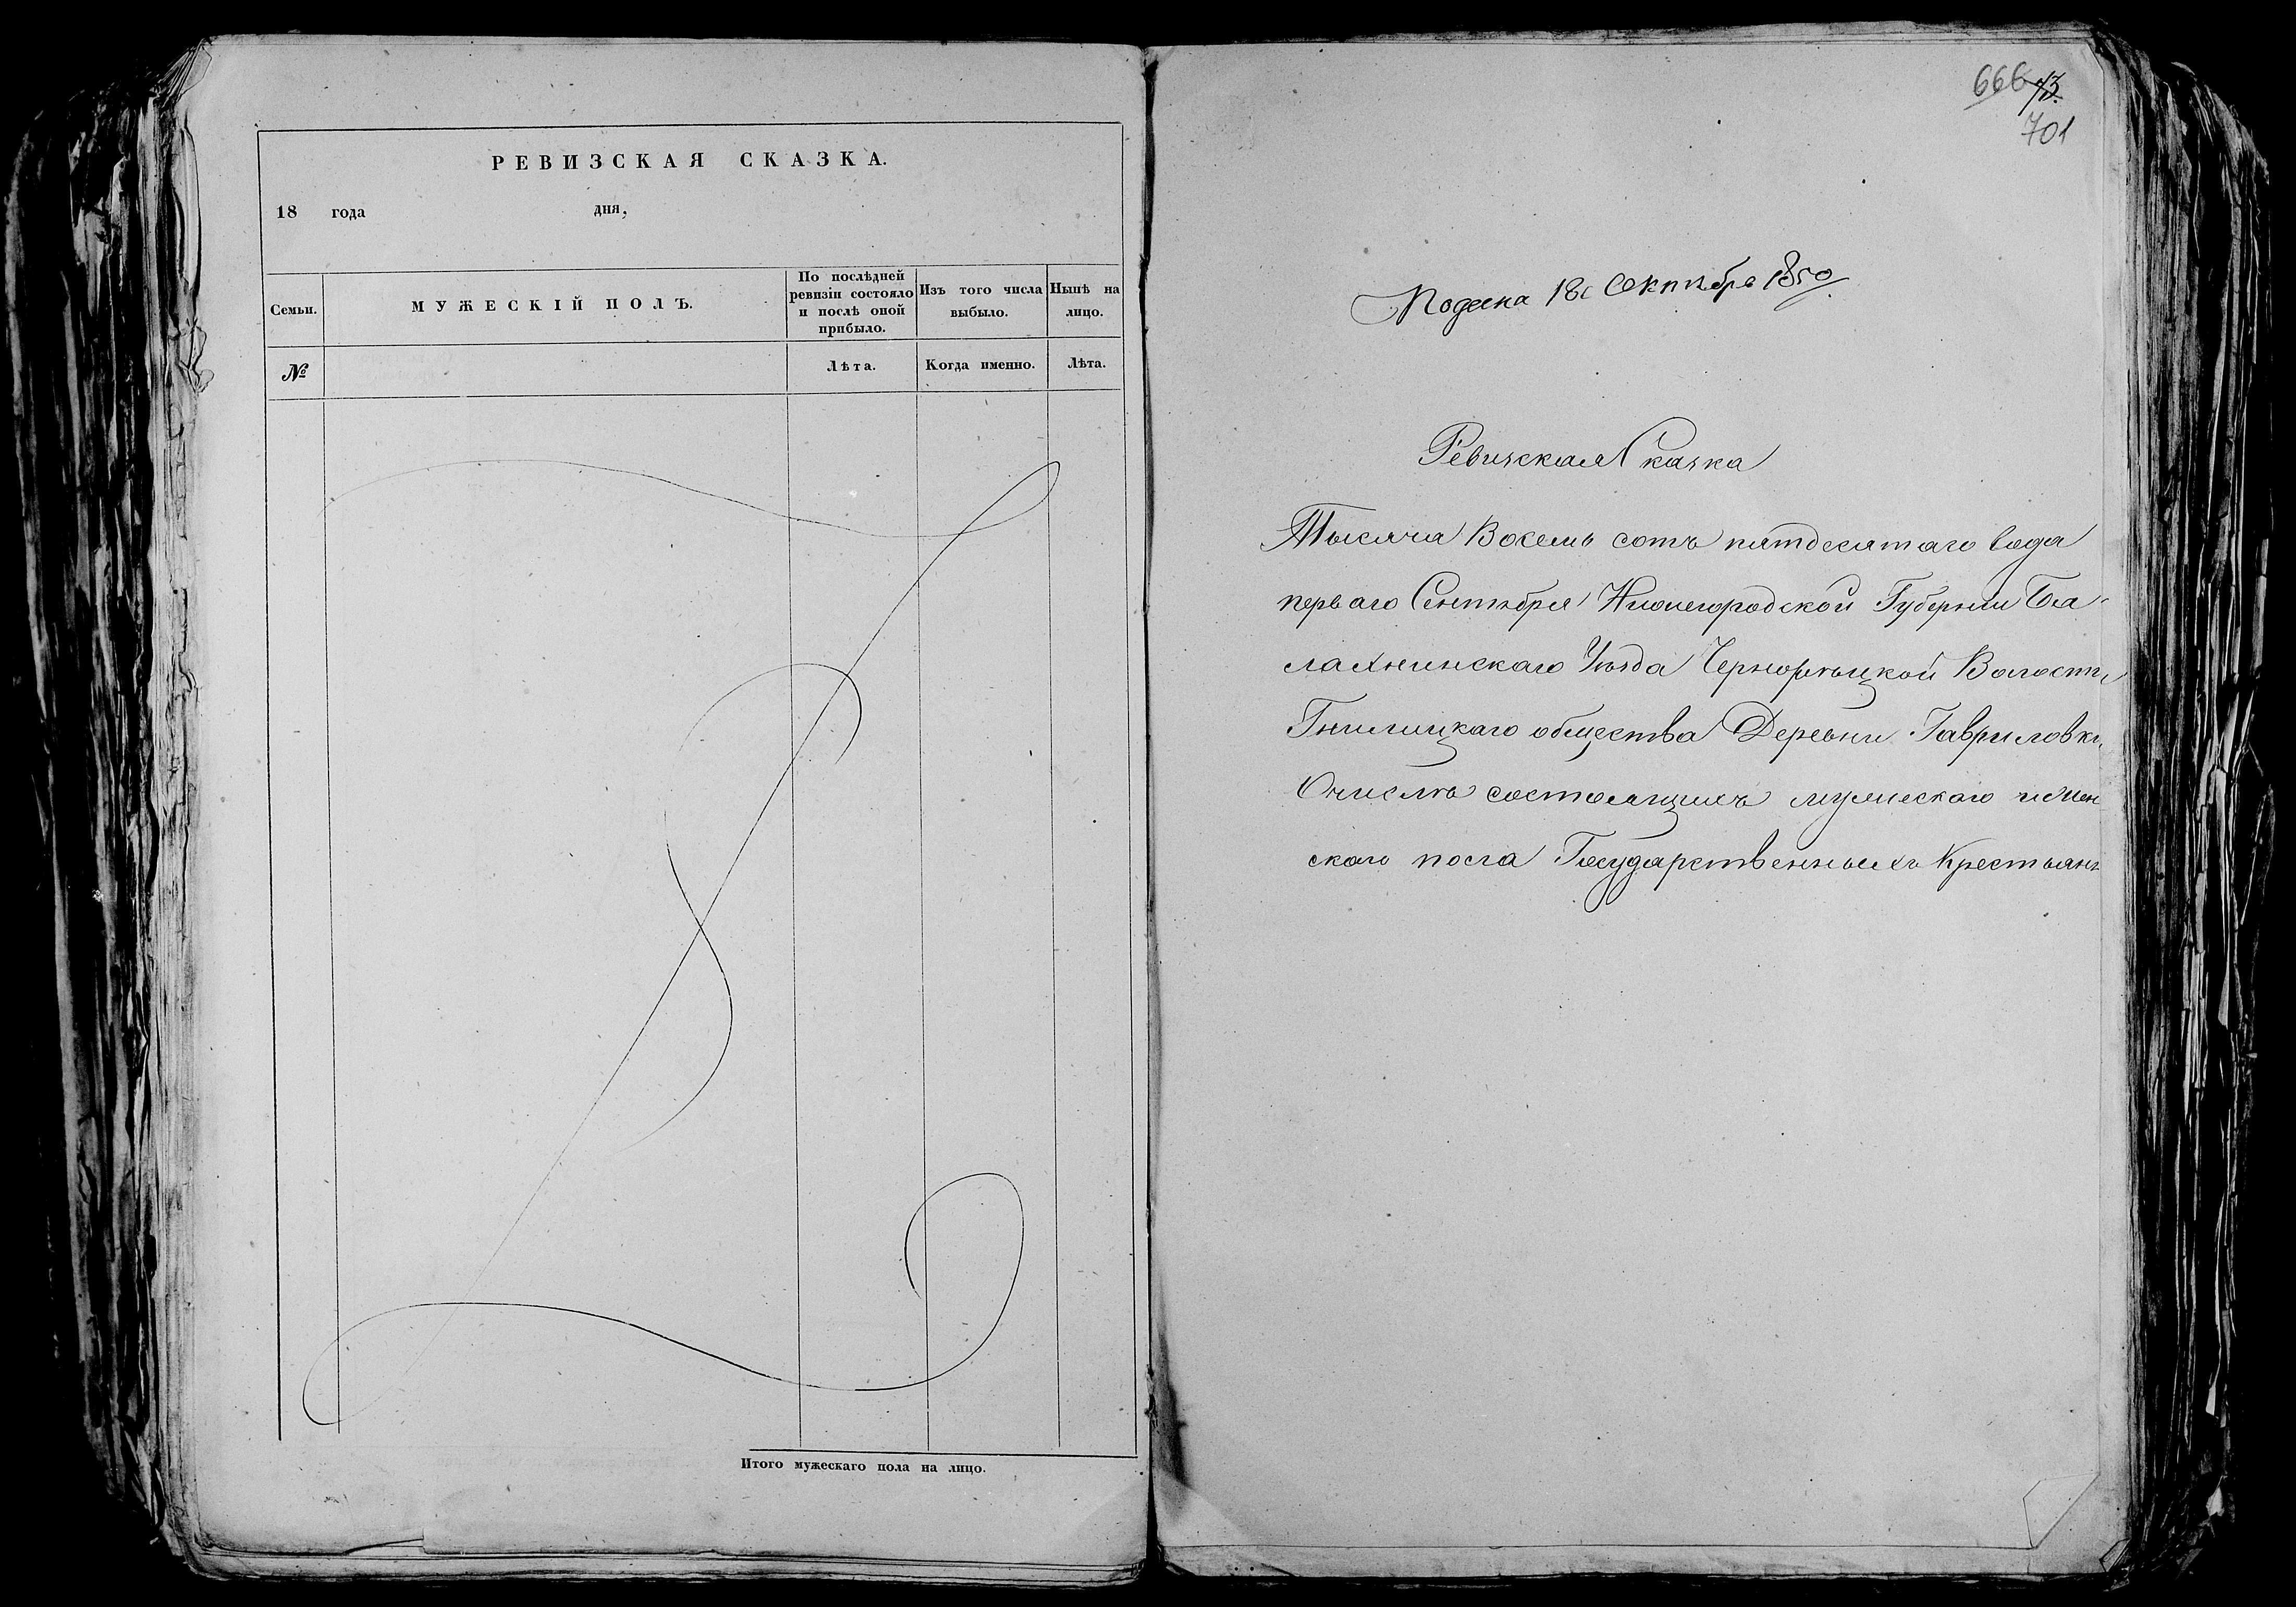 РЕВИЗСКАЯ СКАЗКА.
18 года дня,
Семьи.
МУЖЕСКІЙ ПОЛЪ.
По послѣдней
ревизіи состояло
и послѣ оной
прибыло.
Изъ того числа
выбыло.
Нынѣ на
лицо.
№
Лѣта.
Когда именно.
Лѣта.
Итого мужескаго пола на лицо.
666 73.
701
Подана 18 Октября 1850.
Ревизская Сказка
Тысяча Восемь сотъ пятдесятаго года
перваго Сентября Нижегородской Губернии Ба-
лахнинскаго Уѣзда Чернорѣцкой Волости
Гнилицкаго общества Деревни Гавриловки
О числѣ состоящихъ мужескаго и жен
скаго пола Государственныхъ Крестьянъ